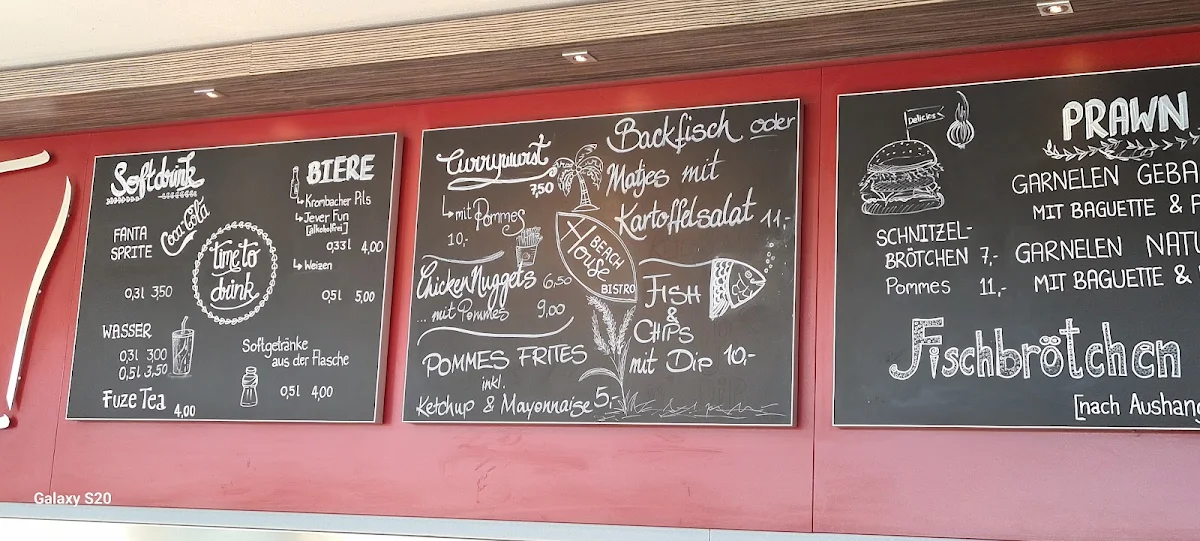 Softdrink
Coca Cola
FANTA
SPRITE
0,3l 3,50
Time to
drink
WASSER
0,3l 3,00
0,5l 3,50
Fuze Tea 4,00
BIERE
↳ Krombacher Pils
↳ Jever Fun
[alkoholfrei]
0,33l 4,00
↳ Weizen
0,5l 5,00
Softgetränke
aus der Flasche
0,5l 4,00
Currywurst
7,50
↳ mit Pommes
10,-
Chicken Nuggets 6,50
... mit Pommes 9,00
POMMES FRITES
inkl.
Ketchup & Mayonnaise 5,-
Backfisch oder
Matjes mit
Kartoffelsalat 11,-
BEACH
House
BISTRO
FISH
&
CHIPS
mit Dip 10,-
Delicios
SCHNITZEL-
BRÖTCHEN 7,-
Pommes 11,-
PRAWN
GARNELEN GEBA
MIT BAGUETTE &
GARNELEN NATU
MIT BAGUETTE &
Fischbrötchen
[nach Aushang
Galaxy S20